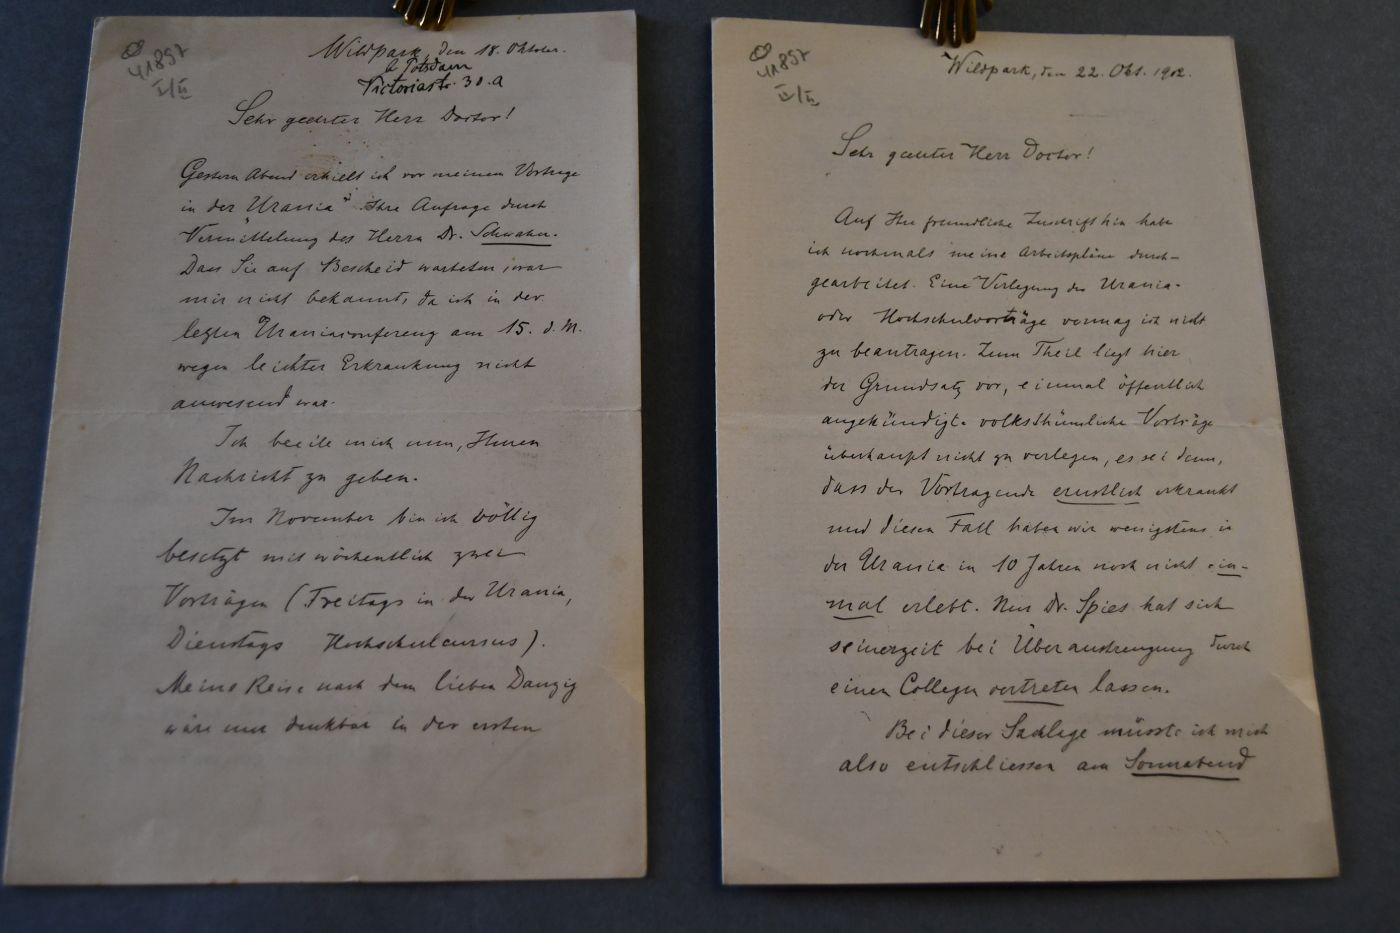 41897
I/II
Wildpark, den 18. Oktober.
b Potsdam
Victoriastr. 30.a
Sehr geehrter Herr Doctor!
Gestern Abend erhielt ich vor meinem Vortrage
in der "Urania" Ihre Anfrage durch
Vermittelung des Herrn Dr. Schwahn.
Dass Sie auf Bescheid warteten, war
mir nicht bekannt, da ich in der
letzten Uraniaconferenz am 15. d. M.
wegen leichter Erkrankung nicht
anwesend war.
Ich beeile mich nun, Ihnen
Nachricht zu geben.
Im November bin ich völlig
besetzt mit wöchentlich zwei
Vorträgen (Freitags in der Urania,
Dienstags Hochschulcursus).
Meine Reise nach dem lieben Danzig
wäre nur denkbar in der ersten
41897
II/II
Wildpark, den 22. Okt. 1902.
Sehr geehrter Herr Doctor!
Auf Ihre freundliche Zuschrift hin habe
ich nochmals meine Arbeitspläne durch-
gearbeitet. Eine Verlegung der Urania-
oder Hochschulvorträge vermag ich nicht
zu beantragen. Zum Theil liegt hier
der Grundsatz vor, einmal öffentlich
angekündigte volksthümliche Vorträge
überhaupt nicht zu verlegen, es sei denn,
dass der Vortragende ernstlich erkrankt
und diesen Fall haben wir wenigstens in
der Urania in 10 Jahren noch nicht ein-
mal erlebt. Nur Dr. Spies hat sich
seinerzeit bei Überanstrengung durch
einen Collegen vertreten lassen.
Bei dieser Sachlage müsste ich mich
also entschliessen am Sonnabend